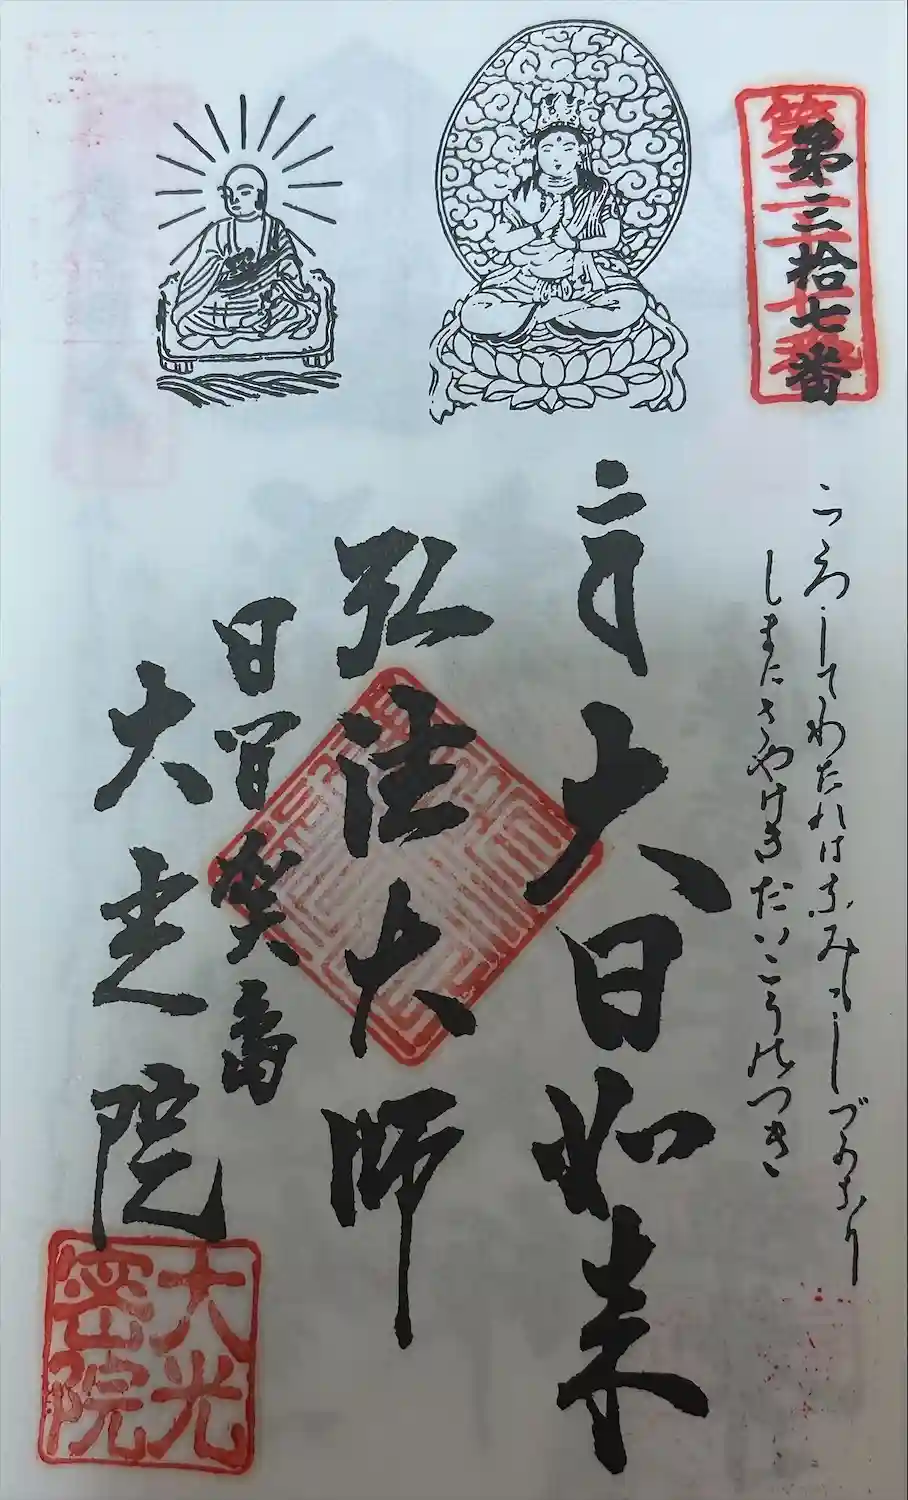 第三拾七番
わたれはなみもしづかなり
しまにさやけきだいこうのつき
大日如来
弘法大師
日間賀島
大光院
大光
密院